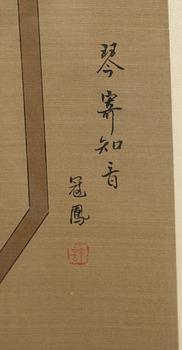 琴寄知音
冠鳳